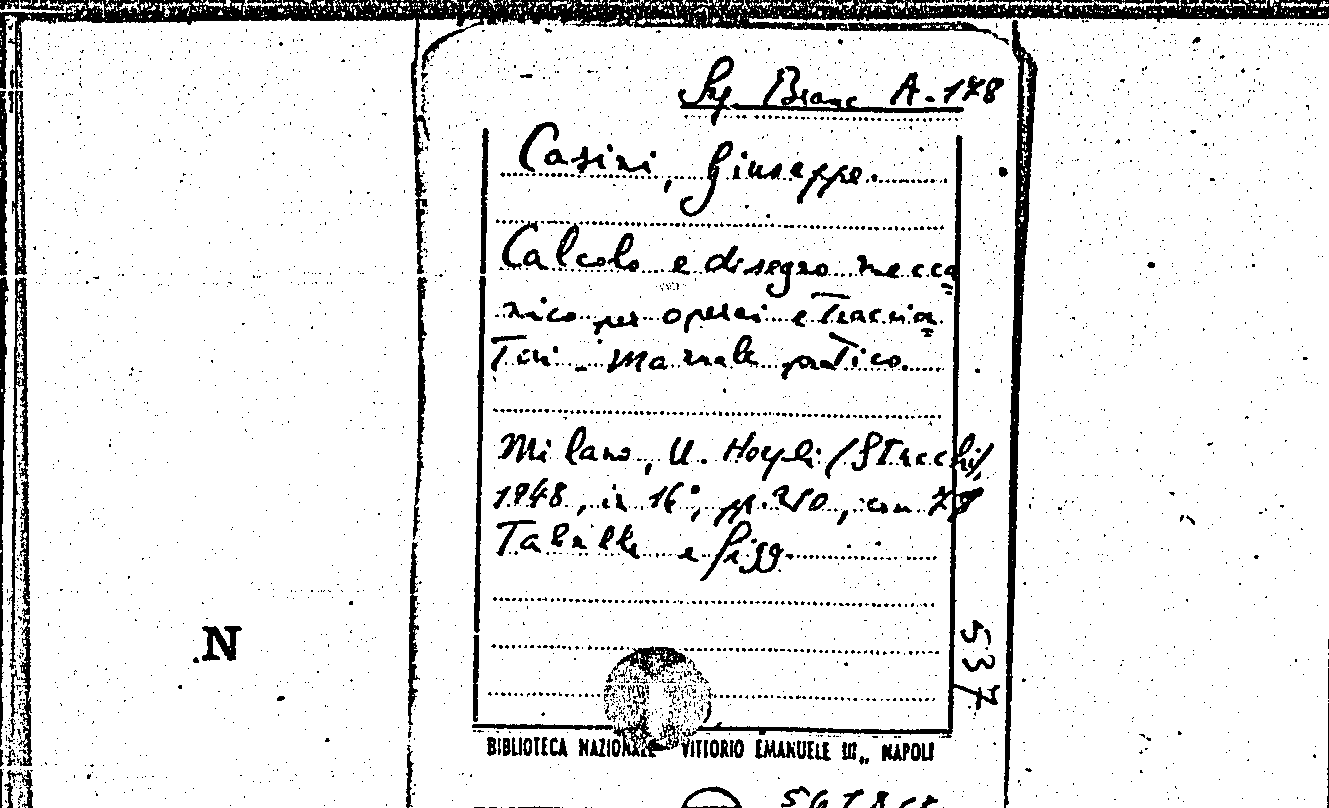 Sez. Branc A. 178
Casini, Giuseppe.
Calcolo e disegno mecca
nico per operai e Traccia
Tori. Manuale pratico.
Milano, U. Hoepli (Stucchi)
1948, in 16°, pp. 210, con 78
Tabelle e figg.
537
N
BIBLIOTECA NAZIONALE VITTORIO EMANUELE III,, NAPOLI